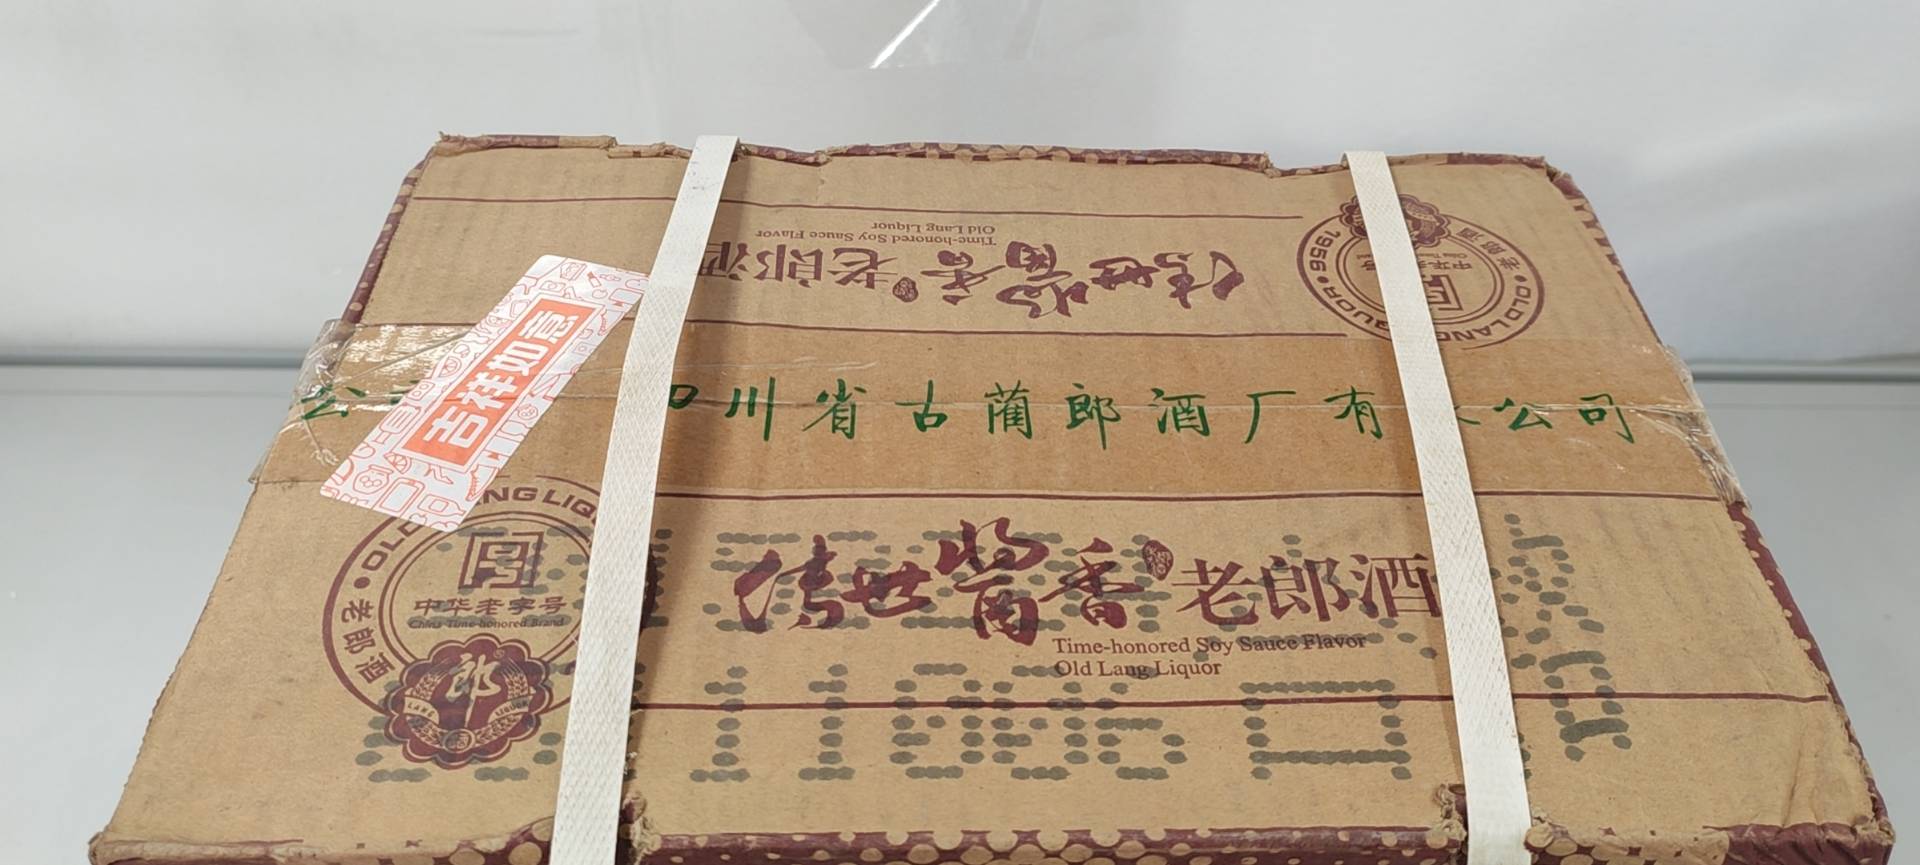 Old Lang Liquor
Time-honored Soy Sauce Flavor
传世酱香老郎酒
1956
老郎酒
OLD LANG
中华
吉祥如意
川省古蔺郎酒厂有
公司
NG LIQU
OLD
老郎酒
中华老字号
China Time-honored Brand
郎
LANG LIQUOR
传世酱香老郎酒
Time-honored Soy Sauce Flavor
Old Lang Liquor